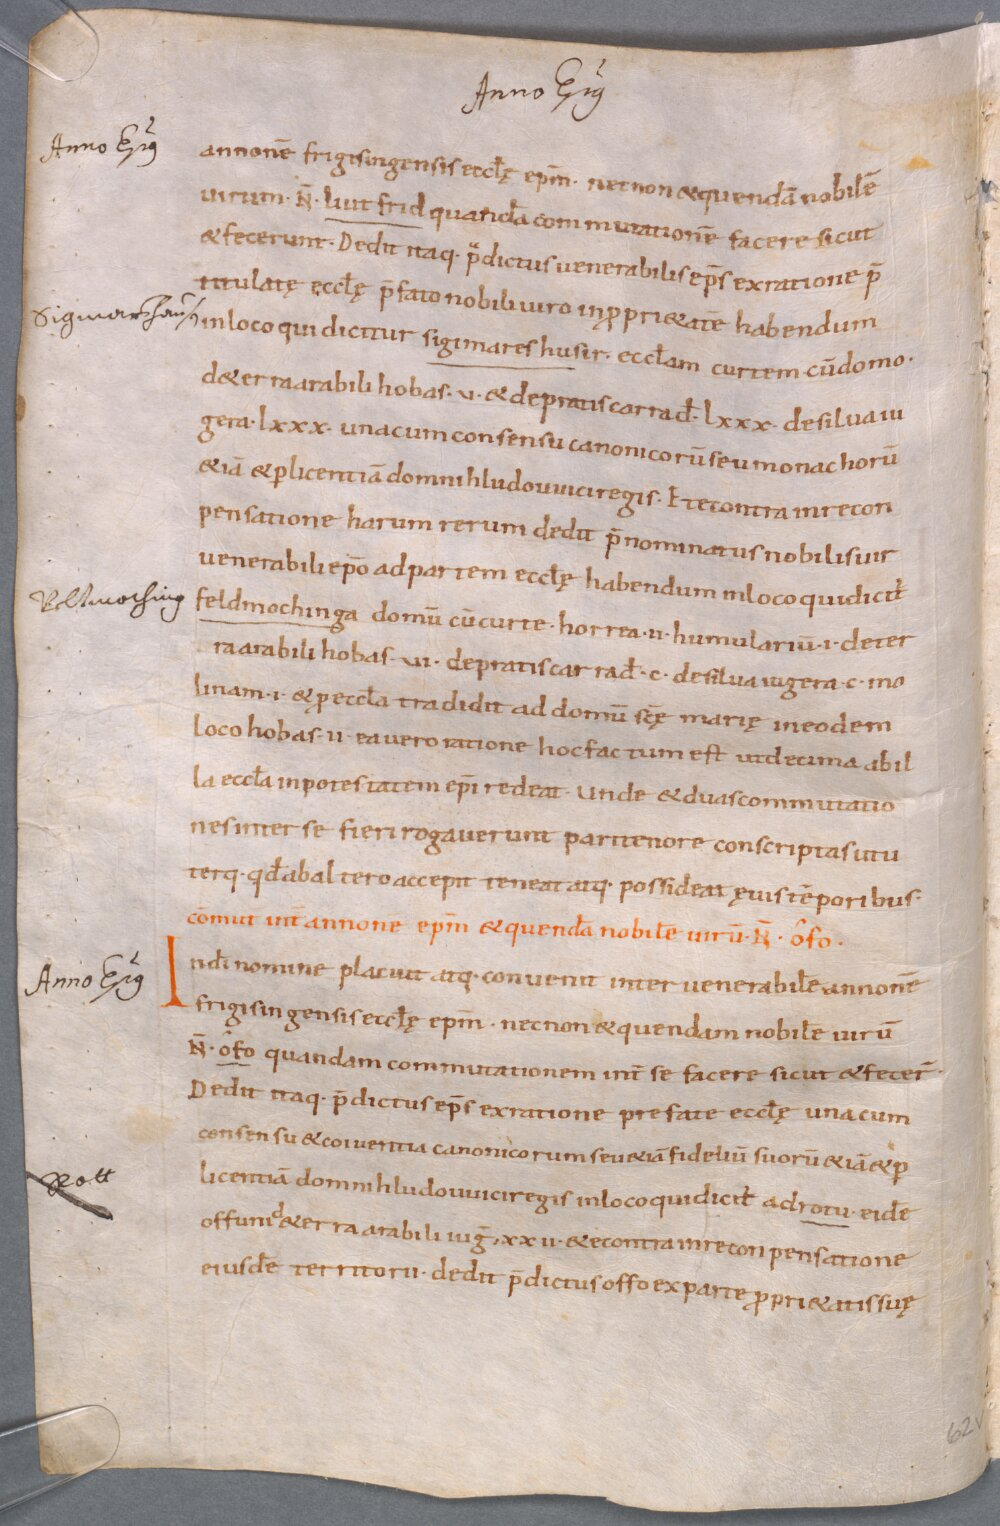 Anno Epũs
Anno Epũs
annonē frigisingensis eccłę ep̄m · necnon &quendā nobilē
uirum · N̄ · liut frid quandā commutationē facere sicut
&fecerunt · Dedit itaq · p̄dictus uenerabilis ep̄s exratione p̄
titulatę eccłę p̄fato nobiliuiro inp̱pri&atē habendum
Sigmarzhaus
inloco qui dicitur sigimares husir · eccłam curtem · cū domo ·
d&erra arabili hobas · v · & depratis carrad̄ · lxxx · desilua iu
gera · lxxx · unacum consensu canonicorū seu monachorū
&iā &plicentiā domnihludouuici regis · E tecontra inrecon
pensatione harum rerum dedit p̄nominatus nobilis uir
uenerabili ep̄o adpartem eccłę habendum inloco quidicit̄
Veltmoching
feldmochinga domū cū curte · horrea · ii · humulariū · i · deter
ra arabili hobas · vi · depratis car rad̄ · c · desilua iugera · c · mo
linam · i · &p̱ eccła tradidit ad domū sc̄ę marię ineodem
loco hobas · ii · eauero ratione hocfactum est utdecima abil
la eccła inpotestatem ep̄i redeat · Unde &duas commutatio
nes inter se fieri rogauerunt paritenore conscriptas utu
terq · qd̄ abaltero accepit teneat atq · possideat ęuis tēporibus ·
cōmut int̄ annone ep̄m &quendā nobilē uirū · N̄ · ofo ·
Anno Epũs
Indī nomine placuit atq · conuenit inter uenerabilē annonē
frigisingensis eccłę ep̄m · necnon &quendam nobilē uirū
N̄ · ofo quandam commutationem int̄ se facere sicut &fecer̄ ·
Dedit itaq · p̄dictus ep̄s exratione prefate eccłę unacum
consensu &coiuentia canonicorum seu&iā fideliū suorū &iā&p̱
Rott
licentiā domnihludouuici regis inloco quidicit̄ adrotu · eidē
offuni d&erra arabili iuḡ · xxii · &econtra inreconpensatione
eiusdē territorii · dedit p̄dictus offo exparte p̱pri&atis suę
62v